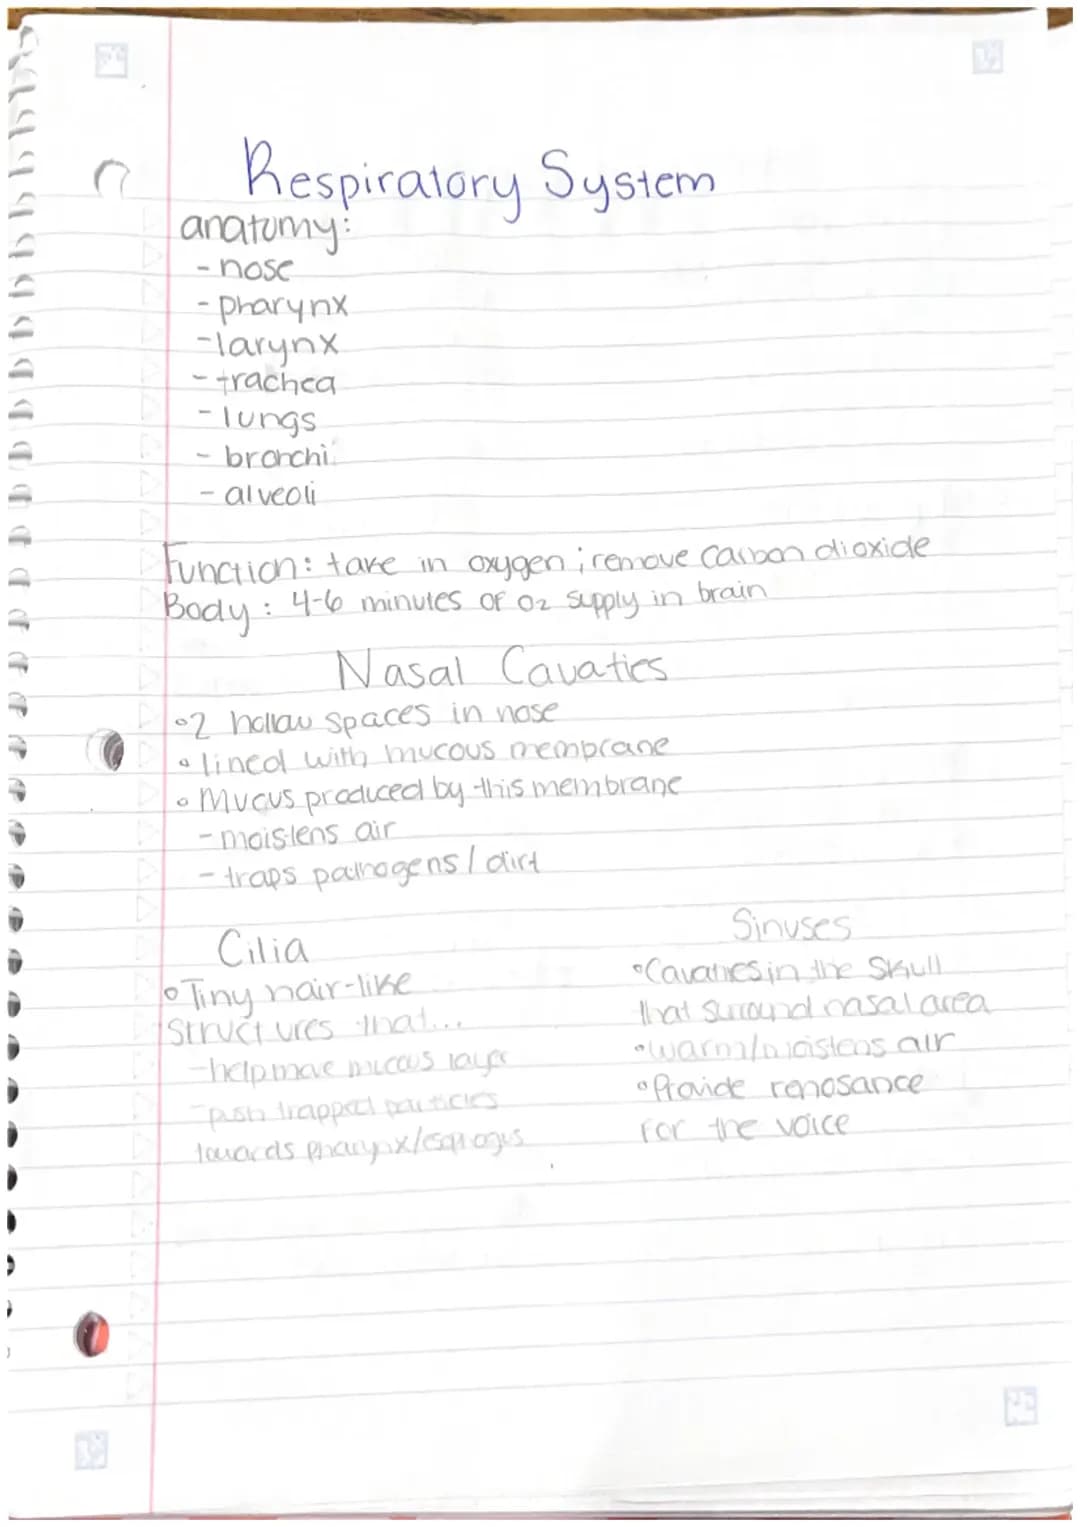 Respiratory System
anatomy:
- nose
- pharynx
- larynx
- trachea
- lungs
- bronchi
- alveoli
Function: take in oxygen; remove carbon dioxide
Body: 4-6 minutes of O2 supply in brain
Nasal Cavaties
•2 hollow spaces in nose
• lined with mucous membrane
• Mucus produced by this membrane
- moistens air
- traps pathogens / dirt
Cilia
• Tiny hair-like
structures that...
- help move mucous layer
- push trapped particles
towards pharynx/
Sinuses
• Cavaties in the skull
that surround nasal area
• warm/moistens air
• Provide renosance
for the voice